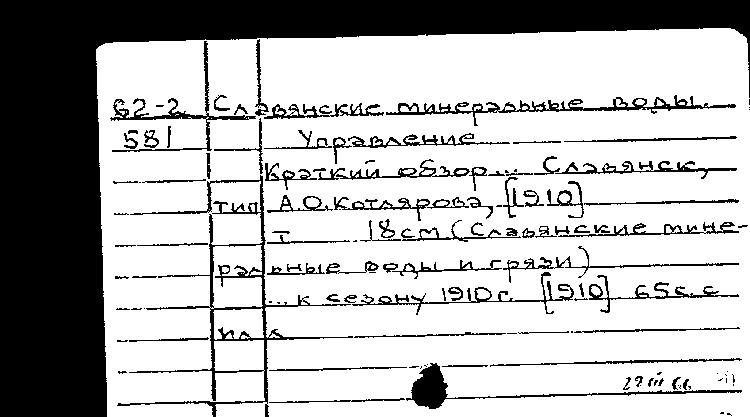 62-2 Славянские минеральные воды.
581 Управление
Краткий обзор... Славянск,
тип А.О.Котлярова, [1910]
т 18см (Славянские мине-
ральные воды и грязи)
... к сезону 1910г. [1910] 65с. с
ил л